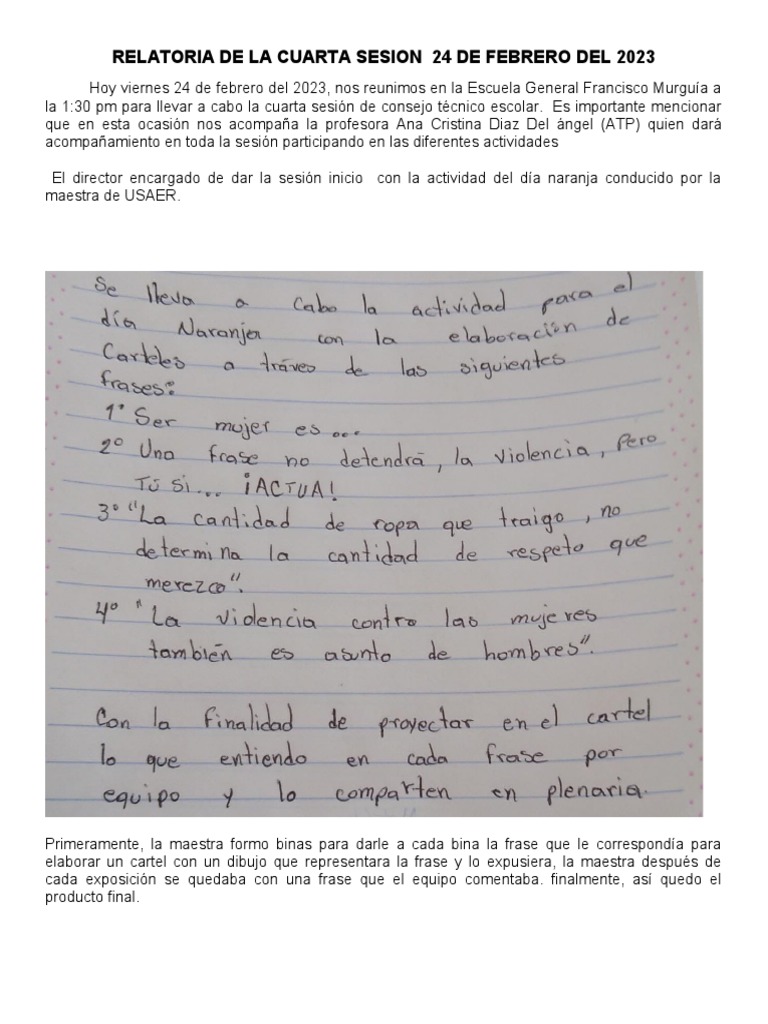 RELATORIA DE LA CUARTA SESION 24 DE FEBRERO DEL 2023
Hoy viernes 24 de febrero del 2023, nos reunimos en la Escuela General Francisco Murguía a
la 1:30 pm para llevar a cabo la cuarta sesión de consejo técnico escolar. Es importante mencionar
que en esta ocasión nos acompaña la profesora Ana Cristina Diaz Del ángel (ATP) quien dará
acompañamiento en toda la sesión participando en las diferentes actividades
El director encargado de dar la sesión inicio con la actividad del día naranja conducido por la
maestra de USAER.
Se lleva a cabo la actividad para el
día Naranja con la elaboración de
Carteles a tráves de las siguientes
frases:
1° Ser mujer es...
2° Una frase no detendrá, la violencia, Pero
TÚ SI... ¡ACTUA!
3° "La cantidad de ropa que traigo, no
determina la cantidad de respeto que
merezco".
4° "La violencia contra las mujeres
también es asunto de hombres".
Con la finalidad de proyectar en el cartel
lo que entiendo en cada frase por
equipo y lo comparten en plenaria.
Primeramente, la maestra formo binas para darle a cada bina la frase que le correspondía para
elaborar un cartel con un dibujo que representara la frase y lo expusiera, la maestra después de
cada exposición se quedaba con una frase que el equipo comentaba. finalmente, así quedo el
producto final.